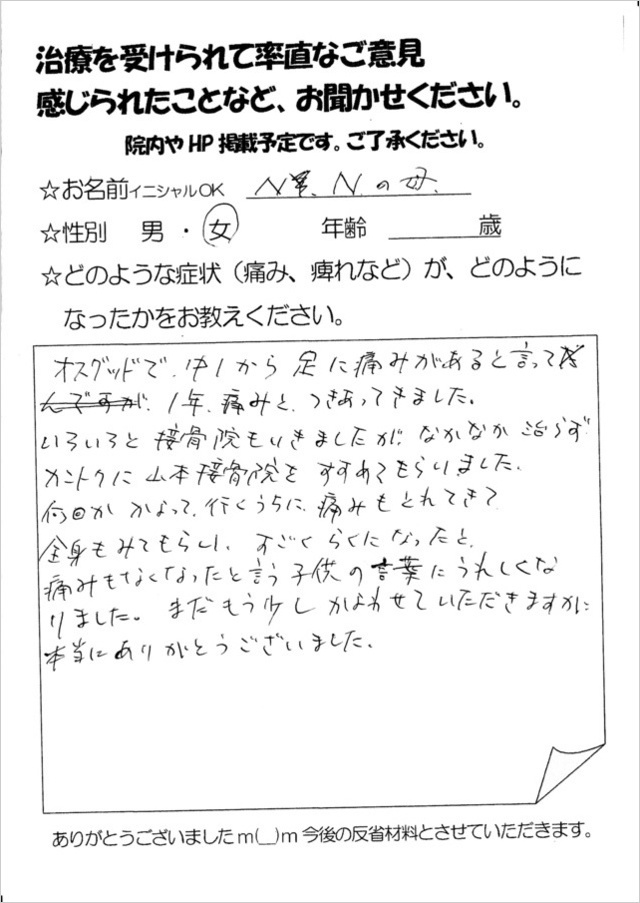 治療を受けられて率直なご意見
感じられたことなど、お聞かせください。
院内やHP掲載予定です。ご了承ください。
☆お名前イニシャルOK N. N. の母.
☆性別 男 ・ 女 年齢 歳
☆どのような症状（痛み、痺れなど）が、どのように
なったかをお教えください。
オスグッドで、中1から 足に痛みがあると言って
んですが、1年、痛みと、つきあってきました。
いろいろと 接骨院もいきましたが、なかなか 治らず
カントクに 山本接骨院を すすめてもらいました。
何回か かよって、行くうちに、痛みもとれてきて
全身もみてもらい、すごく らくになったと、
痛みもなくなったと言う 子供の 言葉にうれしくな
りました。 まだもう少し かよわせていただきますが、
本当にありがとうございました。
ありがとうございましたm(__)m今後の反省材料とさせていただきます。